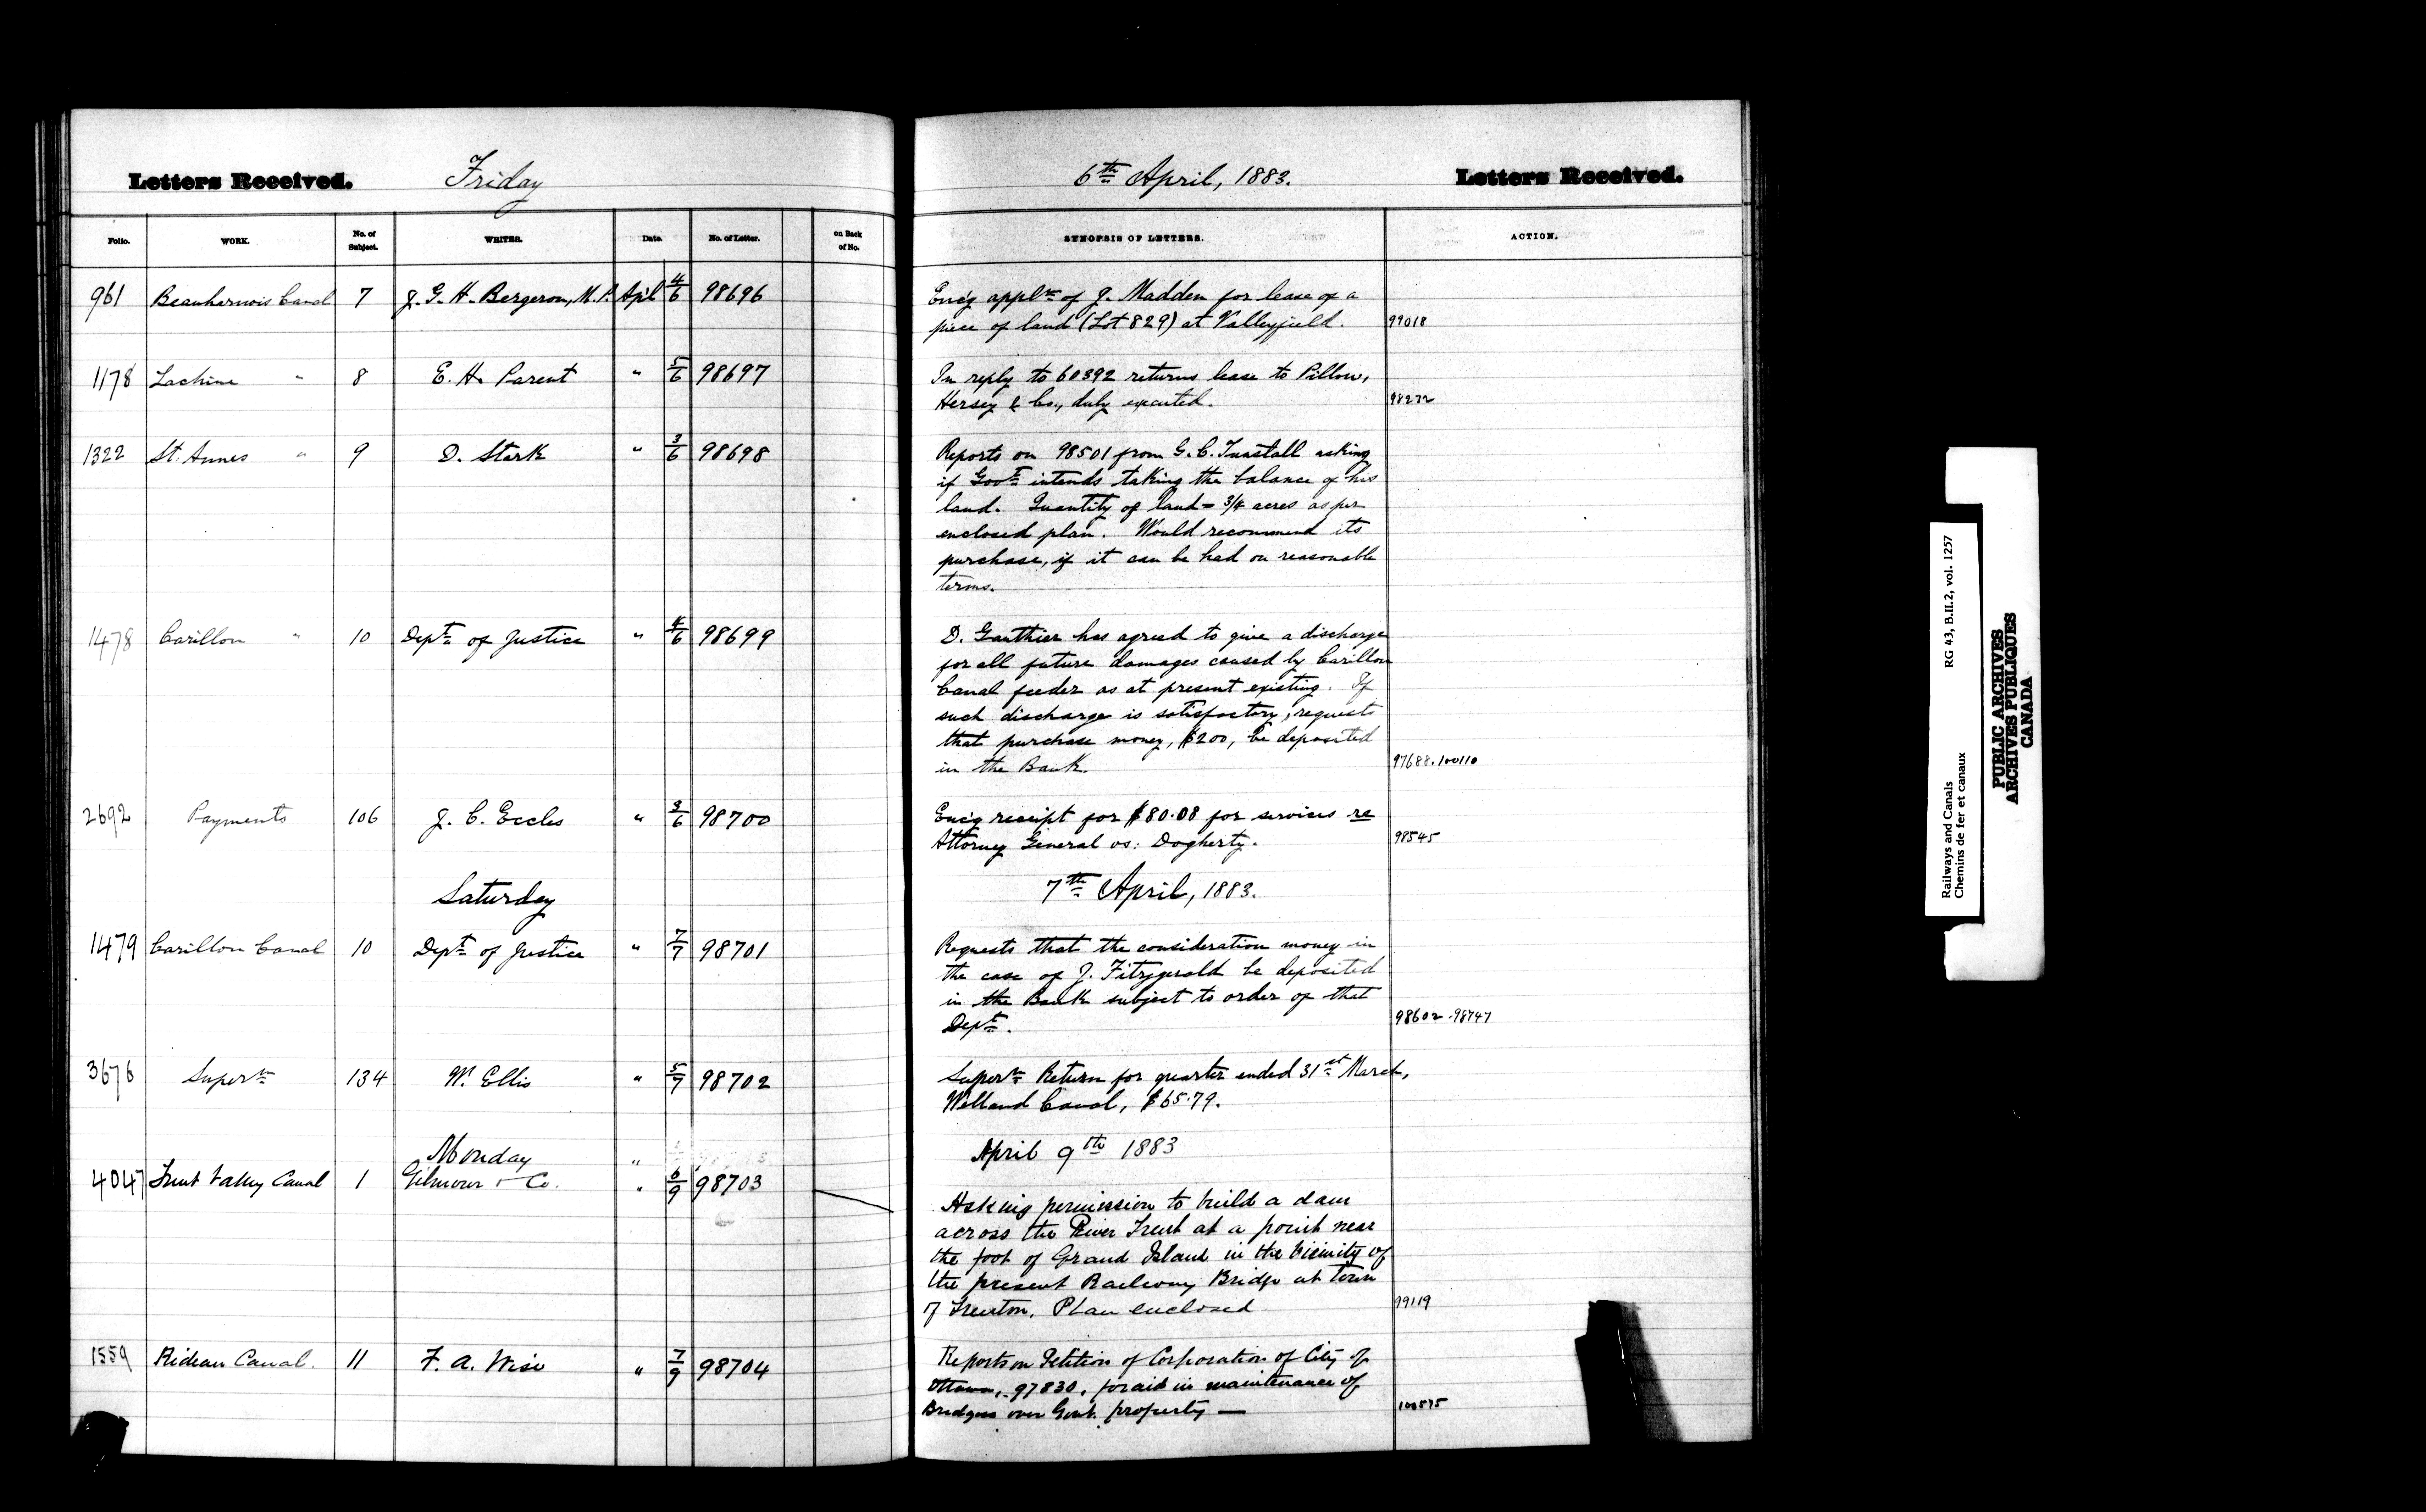 Letters Received. Friday
Folio. WORK. No. of Subject. WRITER. Date. No. of Letter. on Back of No.
961 Beauharnois Canal 7 J. G. H. Bergeron, M.P. Apl 4/6 98696
1178 Lachine " 8 E. H. Parent " 5/6 98697
1322 St. Annes " 9 D. Stark " 3/6 98698
1478 Carillon " 10 Dept. of Justice " 4/6 98699
2692 Payments 106 J. C. Eccles " 3/6 98700
Saturday
1479 Carillon Canal 10 Dept. of Justice " 7/7 98701
3676 Supertn 134 W. Ellis " 5/7 98702
Monday "
4047 Trent Valley Canal 1 Gilmour & Co. " 6/9 98703
1559 Rideau Canal. 11 F. A. Wise " 7/9 98704
6th April, 1883. Letters Received.
SYNOPSIS OF LETTERS. ACTION.
Enc'g appltn of J. Madden for lease of a
piece of land (Lot 829) at Valleyfield. 99018
In reply to 60392 returns lease to Pillow,
Hersey & Co., duly executed. 98272
Reports on 98501 from G. C. Tunstall asking
if Govt. intends taking the balance of his
land. Quantity of land = 3/4 acres as per
enclosed plan. Would recommend its
purchase, if it can be had on reasonable
terms.
D. Gauthier has agreed to give a discharge
for all future damages caused by Carillon
Canal feeder as at present existing. If
such discharge is satisfactory, requests
that purchase money, $200, be deposited
in the Bank. 97688.100110
Enc'g receipt for $80.08 for services re
Attorney General vs: Dogherty. 98545
7th April, 1883.
Requests that the consideration money in
the case of J. Fitzgerald be deposited
in the Bank subject to order of that
Dept. 98602.98747
Supertn Return for quarter ended 31st March,
Welland Canal, $65.79.
April 9th 1883
Asking permission to build a dam
across the River Trent at a point near
the foot of Grand Island in the vicinity of
the present Railway Bridge at Town
of Trenton. Plan enclosed 99119
Reports on Petition of Corporation of City of
Ottawa, 97830, for aid in maintenance of
Bridges over Govt. property — 100575
Railways and Canals RG 43, B.II.2, vol. 1257
Chemins de fer et canaux
PUBLIC ARCHIVES
ARCHIVES PUBLIQUES
CANADA